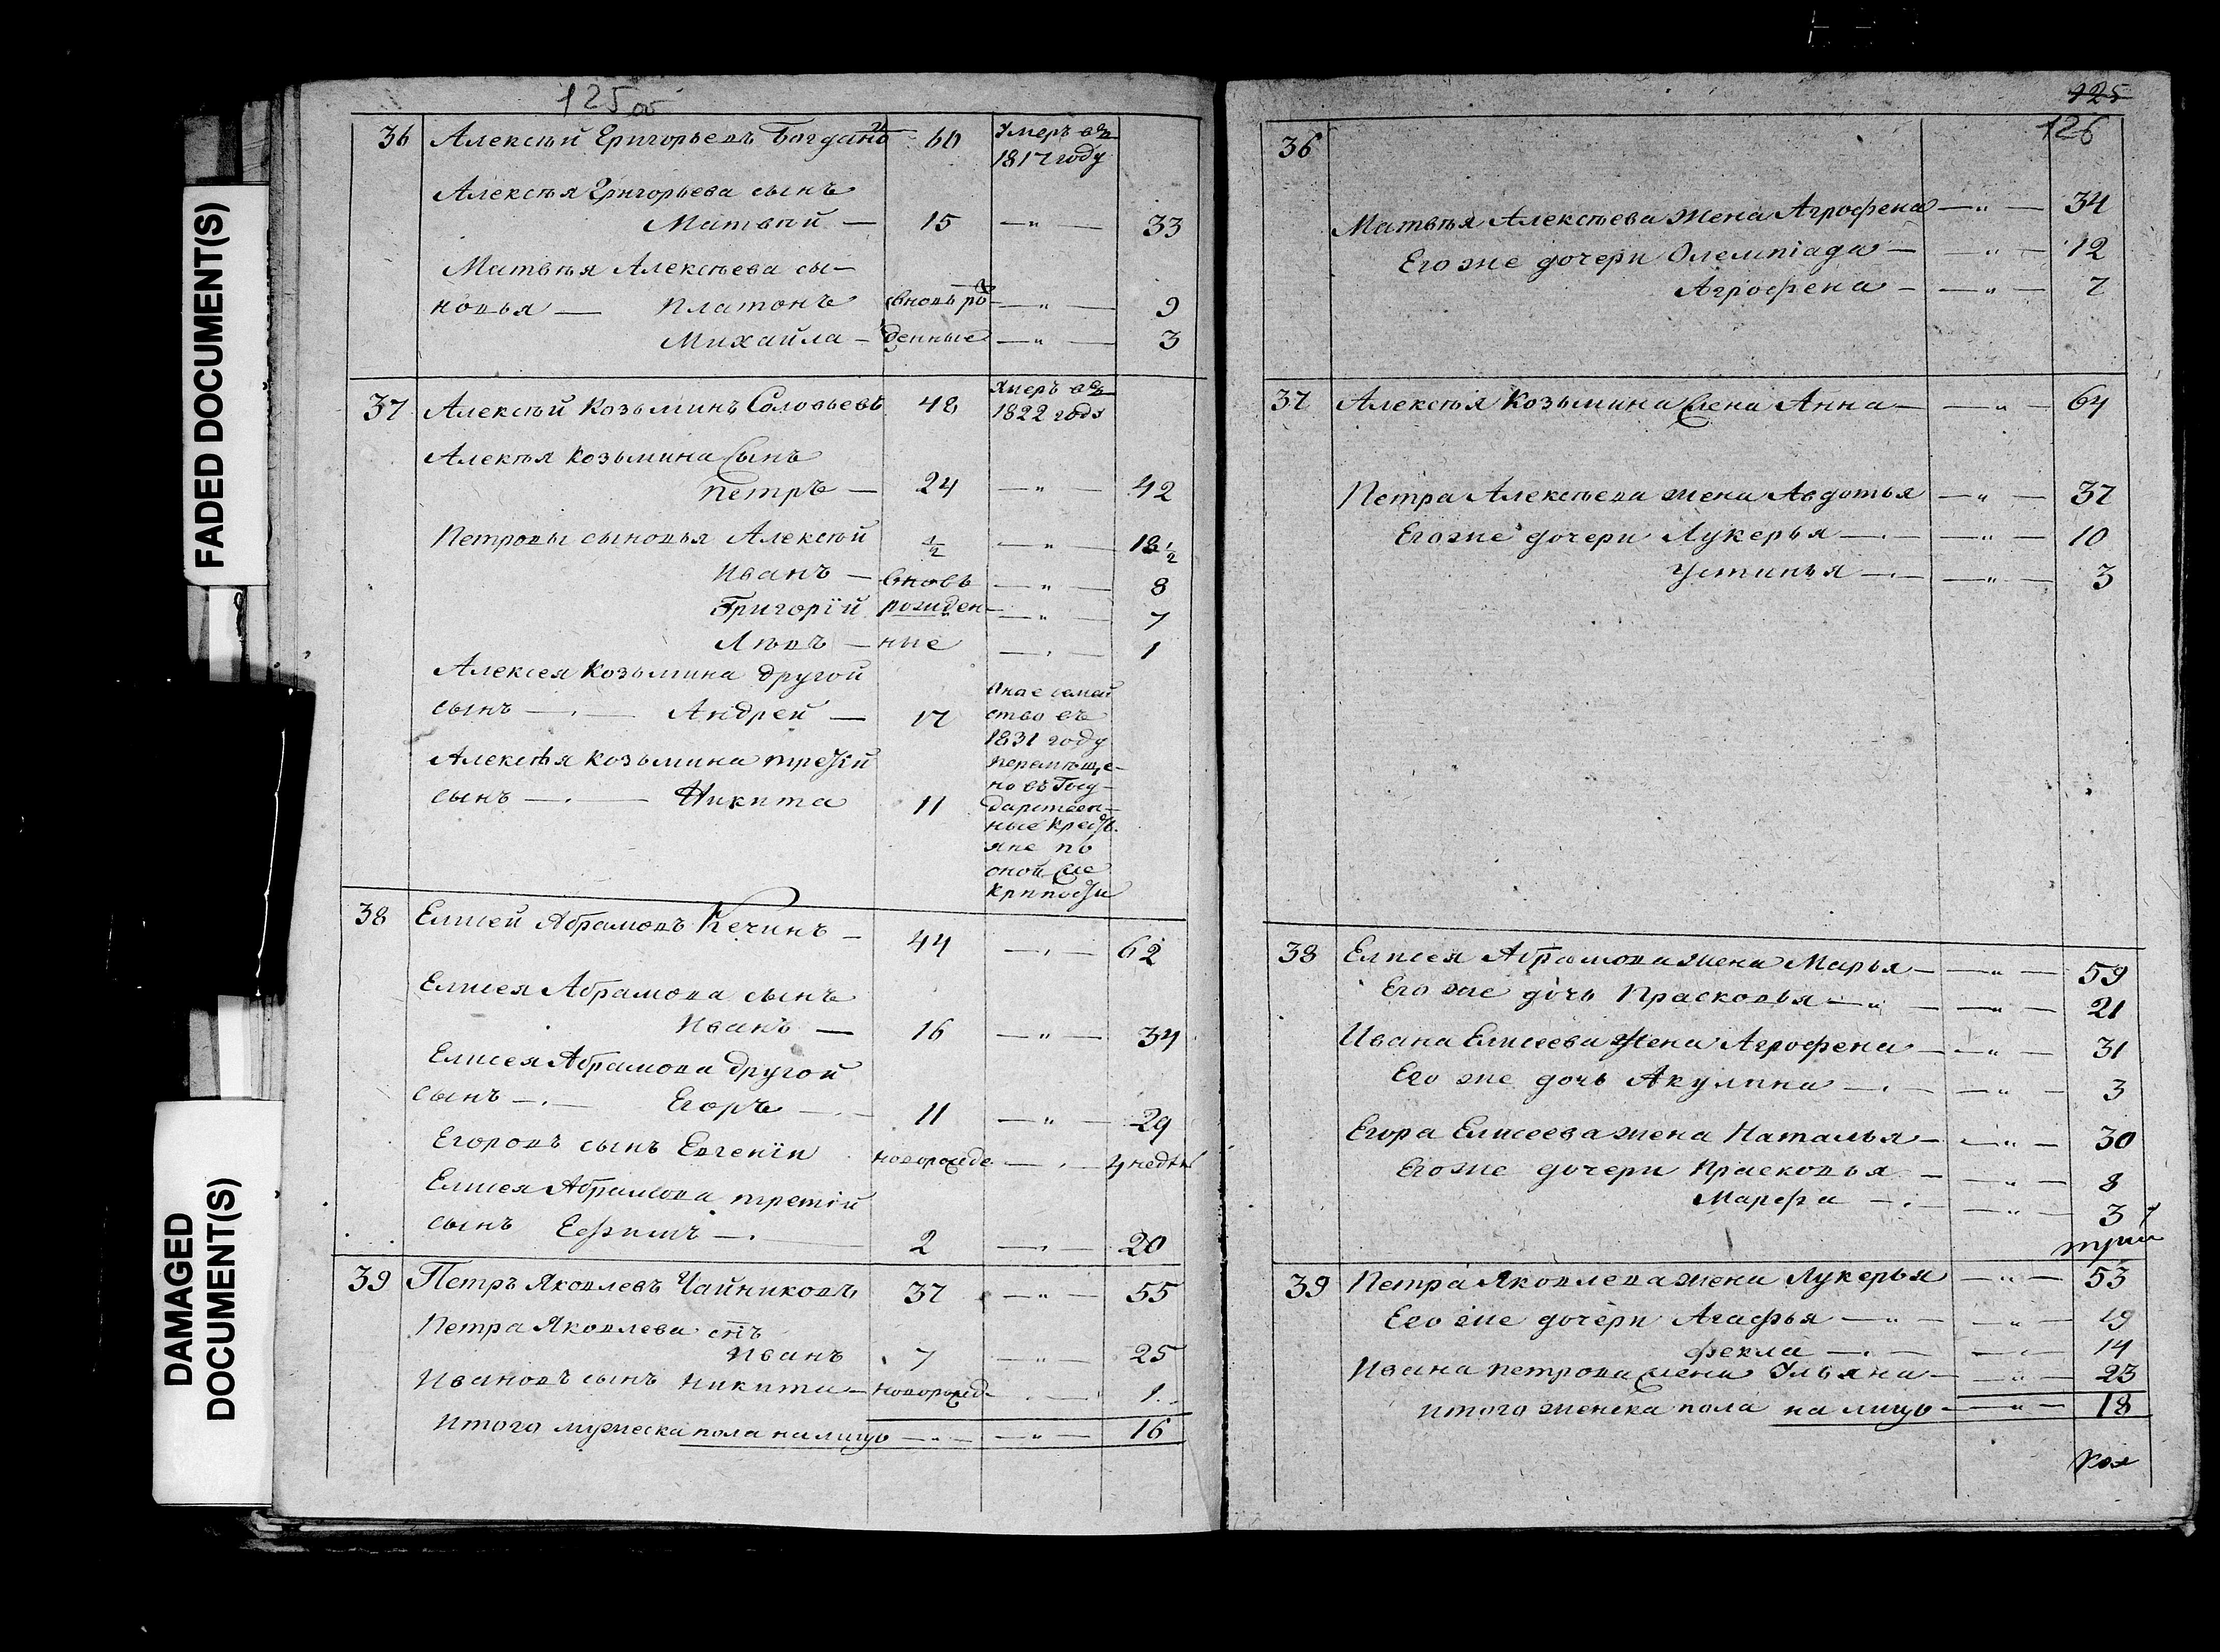 FADED DOCUMENT(S)
DAMAGED
DOCUMENT(S)
125 об
36 Алексѣй Григорьевъ Богдано 60 Умеръ въ
1817 году
Алексѣя Григорьева сынъ
Матвѣй — 15 —„— 33
Матвѣя Алексѣева сы-
новья — Платонъ вновь ро —„— 9
Михайла — жденные —„— 3
37 Алексѣй Козьминъ Соловьевъ 48 Умеръ въ
1822 году
Алексѣя Козьмина Сынъ
Петръ — 24 —„— 42
Петровы сыновья Алексѣй ½ —„— 18½
Иванъ — вновь —„— 8
Григорiй рожден- —„— 7
Лѣвъ — ные —„— 1
Алексея Козьмина другой
сынъ —.— Андрей — 17
Алексѣя Козьмина третiй
сынъ —.— Никита 11
семей
ство въ
1831 году
перемѣще-
но въ Госу-
дарствен-
ные кресть
яне по
оной же
крѣпости
38 Елисей Абрамовъ Кечинъ — 44 —„— 62
Елисея Абрамова сынъ
Иванъ — 16 —„— 34
Елисея Абрамова другой
сынъ —.— Егоръ —.— 11 —„— 29
Егоровъ сынъ Евгенiй новорожде —„— 4 недѣл
Елисея Абрамова третiй
сынъ Ефимъ —.— 2 —„— 20
39 Петръ Яковлевъ Чайниковъ 37 —„— 55
Петра Яковлева снъ
Иванъ 7 —„— 25
Ивановъ сынъ Никита — новорожд- —„— 1
Итого мужеска пола налицо —„— —„— 16
125
126
36
Матвѣя Алексѣева жена Агрофена —„— 34
Его же дочери Олемпiада —„— 12
Агрофена —„— 7
37 Алексѣя Козьмина жена Анна —„— 64
Петра Алексѣева жена Авдотья —„— 37
Его же дочери Лукерья —.— —„— 10
Устинья —.— —„— 3
38 Елисея Абрамова жена Марья —„— 59
Его же дочь Прасковья —„— —„— 21
Ивана Елисеева жена Агрофена —„— 31
Его же дочь Акулина —.— —„— 3
Егора Елисеева жена Наталья —„— 30
Его же дочери Прасковья —„— 8
Марфа —.— —„— 3
три
39 Петра Яковлева жена Лукерья —„— 53
Его же дочери Агафья —„— —„— 19
Фекла —.— —„— 14
Ивана Петрова жена Ульяна —„— 23
Итого женска пола на лицо —„— 18